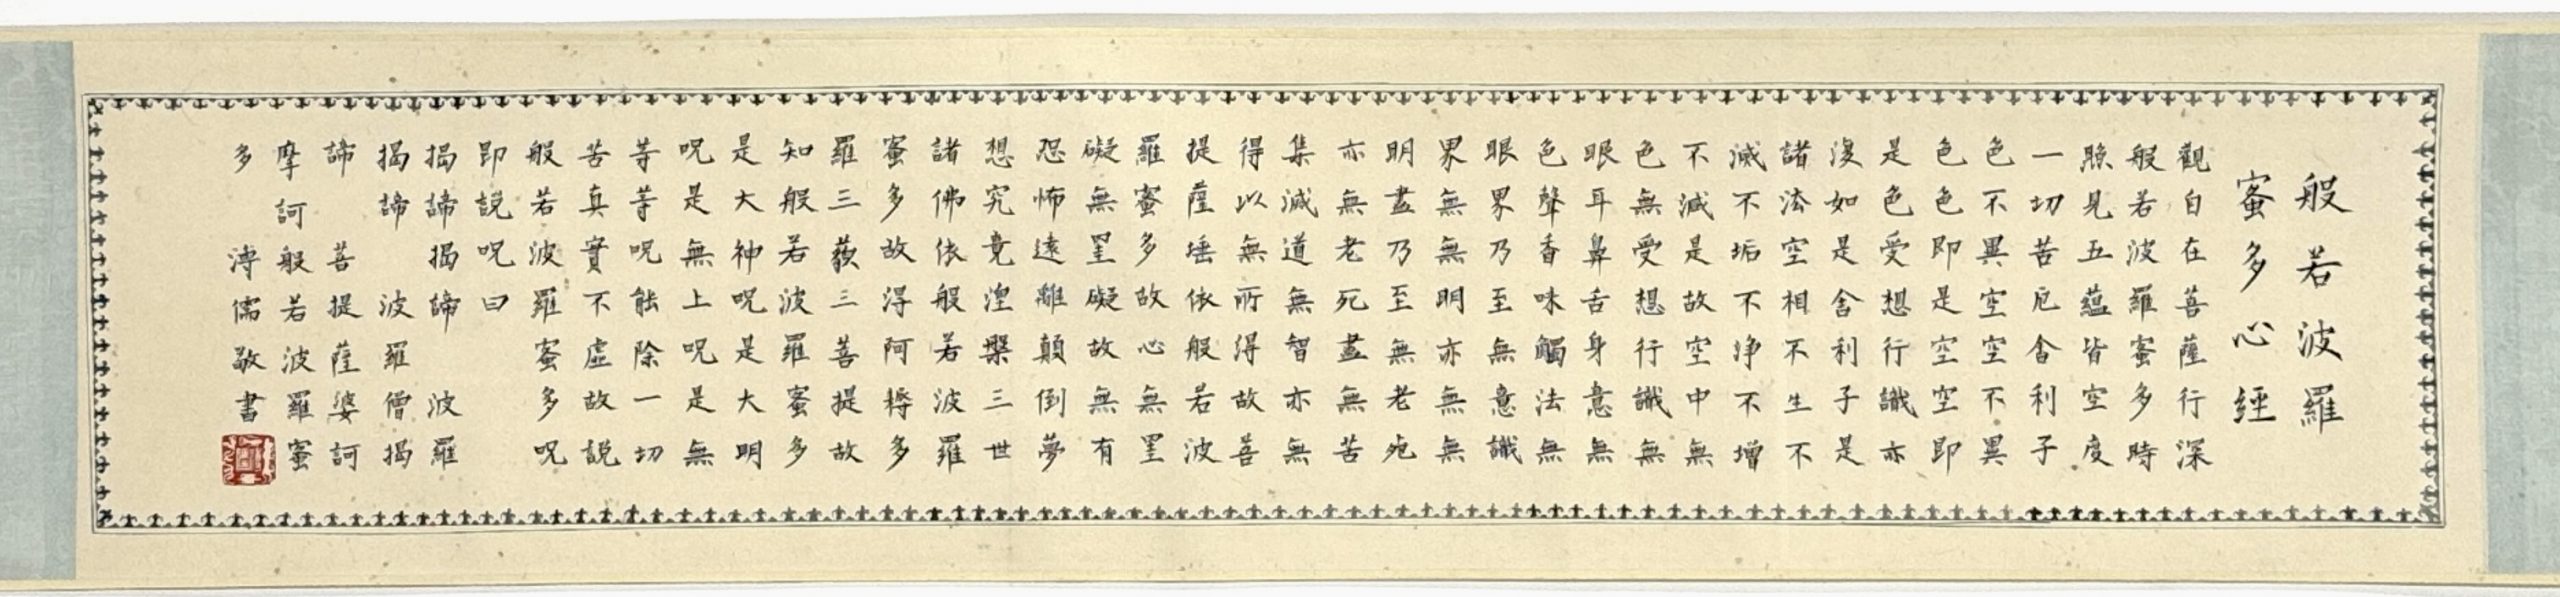 般若波羅
蜜多心經
觀自在菩薩行深
般若波羅蜜多時
照見五蘊皆空度
一切苦厄舍利子
色不異空空不異
色色即是空空即
是色受想行識亦
復如是舍利子是
諸法空相不生不
滅不垢不淨不增
不減是故空中無
色無受想行識無
眼耳鼻舌身意無
色聲香味觸法無
眼界乃至無意識
界無無明亦無無
明盡乃至無老死
亦無老死盡無苦
集滅道無智亦無
得以無所得故菩
提薩埵依般若波
羅蜜多故心無罣
礙無罣礙故無有
恐怖遠離顛倒夢
想究竟涅槃三世
諸佛依般若波羅
蜜多故得阿耨多
羅三藐三菩提故
知般若波羅蜜多
是大神呪是大明
呪是無上呪是無
等等呪能除一切
苦真實不虛故說
般若波羅蜜多呪
即說呪曰
揭諦揭諦 波羅
揭諦 波羅僧揭
諦 菩提薩婆訶
摩訶般若波羅蜜
多 溥儒敬書